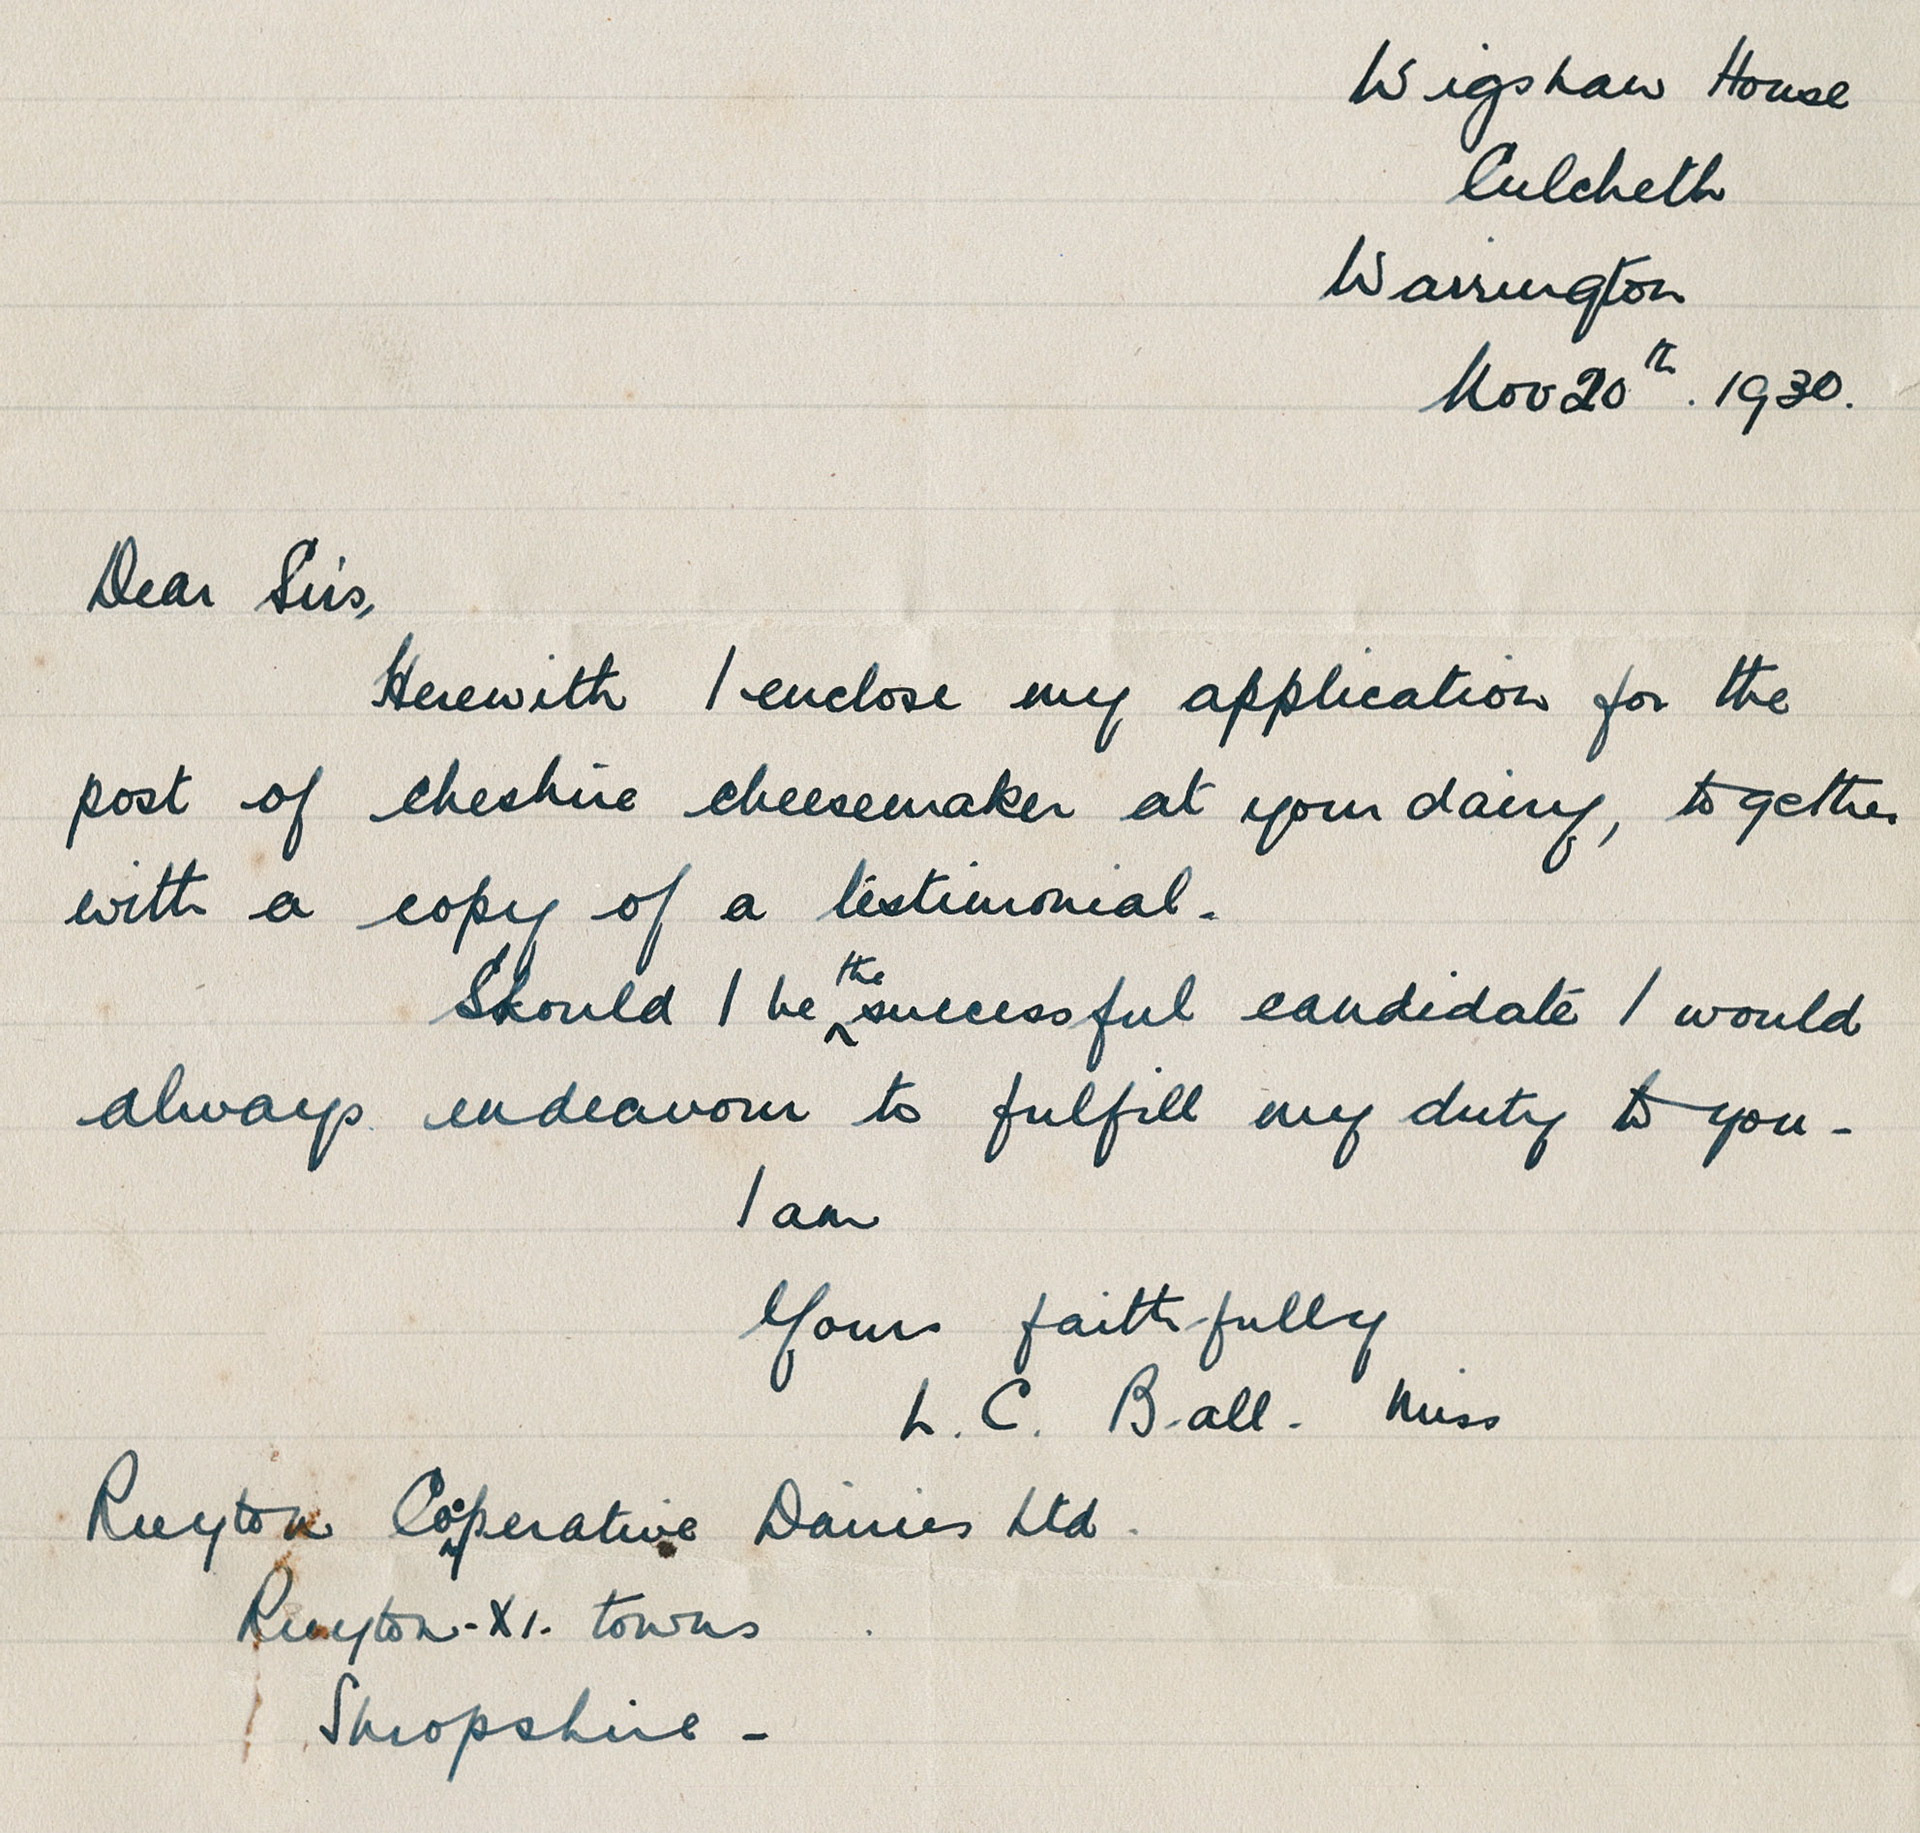 Wigshaw House
Culcheth
Warrington
Nov 20th. 1930.
Dear Sirs,
Herewith I enclose my application for the
post of cheshire cheesemaker at your dairy, together
with a copy of a testimonial.
Should I be the successful candidate I would
always endeavour to fulfill my duty to you -
I am
Yours faithfully
L. C. Ball - Miss
Ruyton Cooperative Dairies Ltd.
Ruyton-XI. towns
Shropshire -